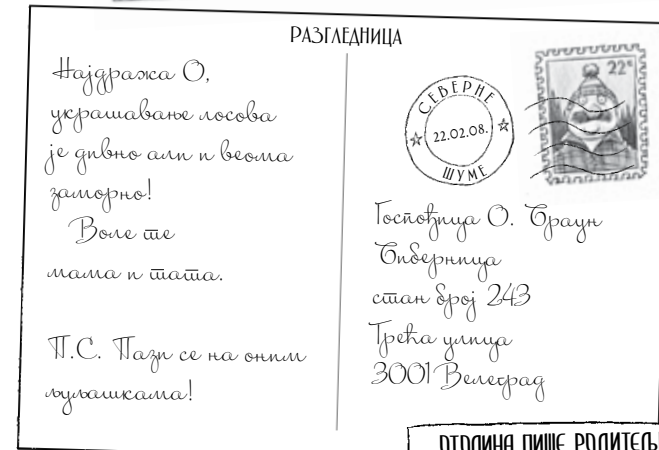 РАЗГЛЕДНИЦА
Најдража О,
украшавање лосова
је дивно али и веома
заморно!
Воле те
мама и тата.
П.С. Пази се на оним
љуљашкама!
СЕВЕРНЕ
22.02.08.
ШУМЕ
22c
Госпођица О. Браун
Биберница
стан број 243
Трећа улица
3001 Велеград
ОТОЛИНА ПИШЕ